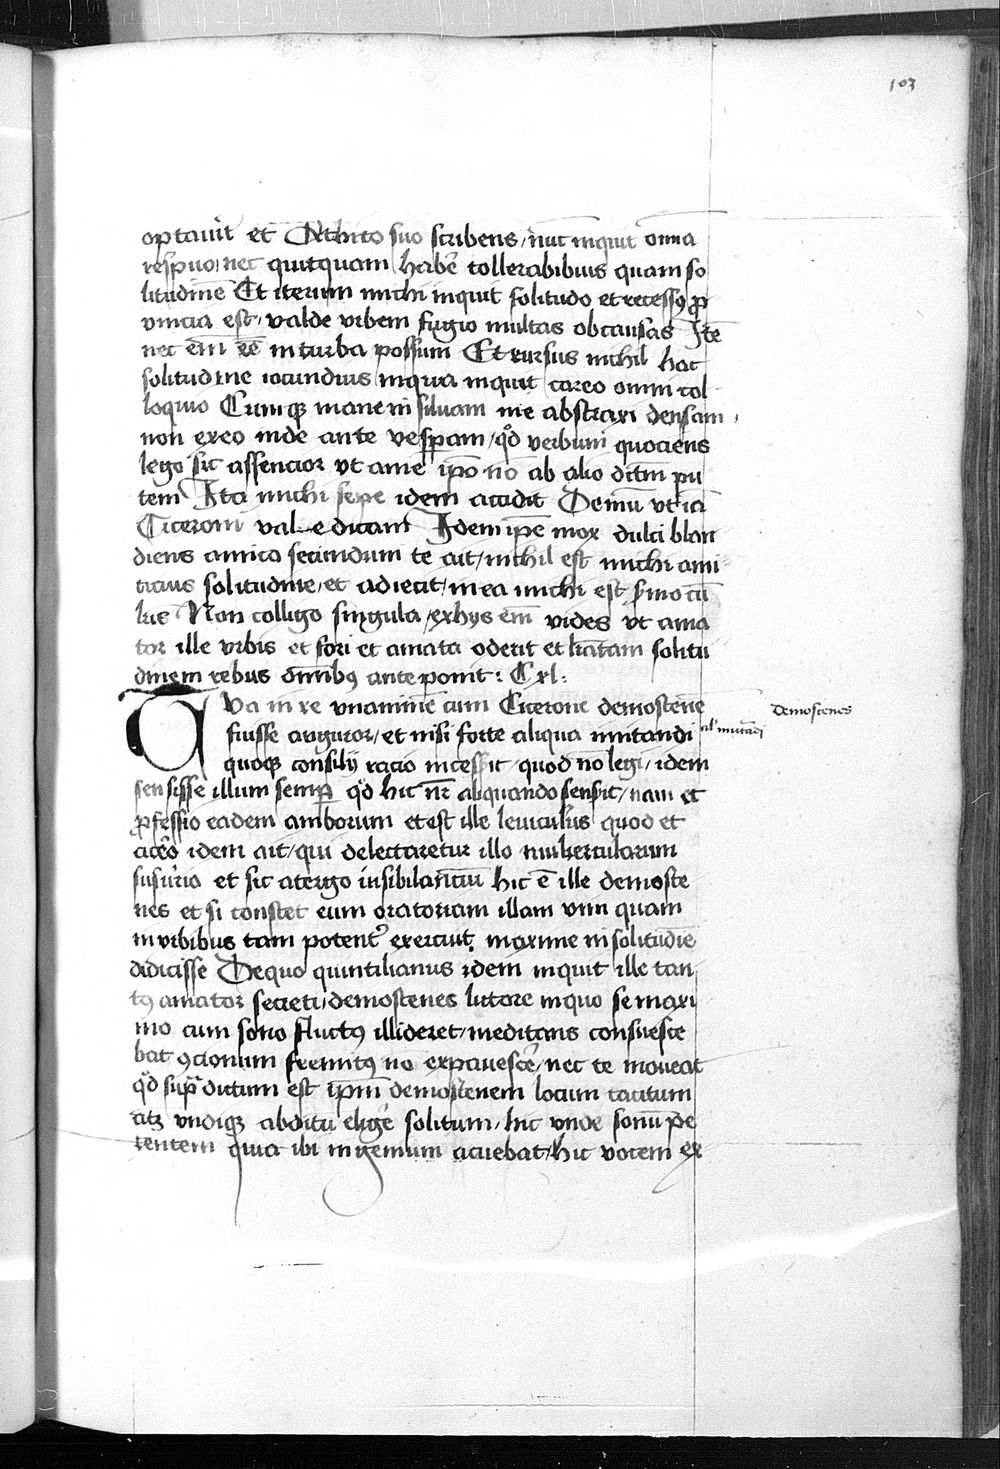 103
optauit et Athico suo scribens / nūc inquit om̄ia
respuo / nec quitquam habē tollerabibius quam so
litudinē Et iterum michi inquit solitudo et recessꝯ ꝓ
vincia est / valde vrbem fugio multas ob causas Itē
nec em̄ rē in turba possum Et rursus nichil hac
solitudine iocundius in qua inquit careo omni col
loquio Cumqꝫ mane in siluam me abstraxi densam
non exeo inde ante vesꝑam / qd̓ verbum quociens
lego sic assencior vt a me ip̄o nō ab alio dictm̄ pu
tem Ita michi sepe idem accidit Demū vt iā
Ciceroni vale dicam Idem ip̄e mox dulci blan
diens amico secundum te ait / nichil est michi ami
ticius solitudine / et adiecit / mea michi est ẜmo cū
lris Non colligo singula / ex hys em̄ vides vt ama
tor ille vrbis et fori et amata oderit et lr̄atam solitu
dinem rebus om̄ibꝯ anteponit : C xl :
QVa in re vnanimē cum Cicerone demostenē
fuisse auguror / et nisi forte aliqua imitandi
al' mutādi
Demostenes
quoqꝫ consilij racio incessit / quod nō legi / idem
sensisse illum semꝑ qd̓ hic nr̄ aliquando sensit / nam et
ꝓfessio eadem amborum et est ille leuiculus quod et
cicēo idem ait / qui delectaretur illo muliercularum
susurrio et sic a tergo insibilanciū hic ē ille demoste
nes et si constet eum oratoriam illam vim quam
in vrbibus tam potent᷑ exercuit / maxime in solitudīe
didicisse De quo quintilianus idem inquit ille tan
tꝯ amator secreti / demostenes littore in quo se maxi
mo cum sono fluctꝯ illideret / meditans consuesce
bat ꝯcionum fremitꝯ nō expauescē / nec te moueat
qd̓ supͣ dictum est ip̄m demostenem locum tacitum
atqꝫ vndiqꝫ abditū eligē solitum / hic vnde sonū pe
tentem quia ibi ingenium acuebat / hic vocem ex